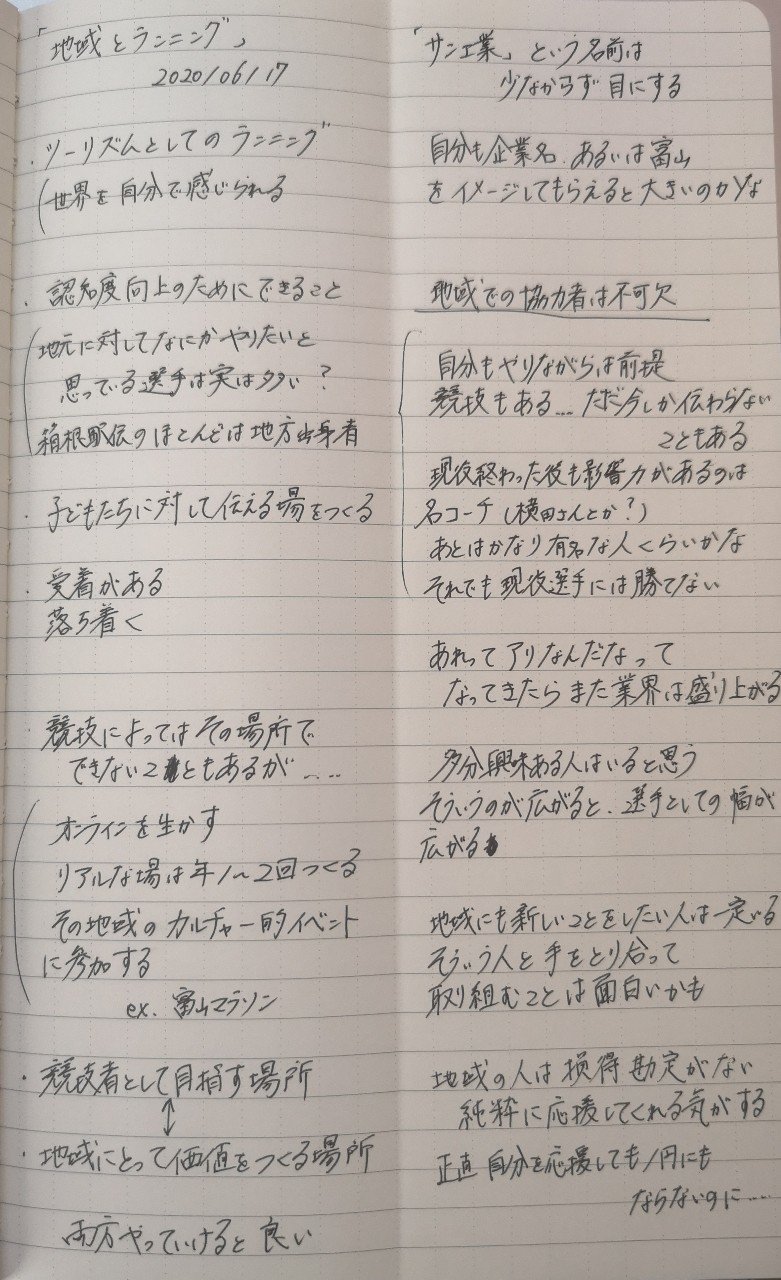 「地域とランニング」
2020/06/17
・ツーリズムとしてのランニング
世界を自分で感じられる
・認知度向上のためにできること
地元に対してなにかやりたいと
思っている選手は実は多い?
箱根駅伝のほとんどは地方出身者
・子どもたちに対して伝える場をつくる
・愛着がある
落ち着く
競技によってはその場所で
できないこともあるが....
オンラインを生かす
リアルな場は年1〜2回つくる
その地域のカルチャー的イベント
に参加する
ex. 富山マラソン
・競技者として目指す場所
↕
・地域にとって価値をつくる場所
両方やっていけると良い
「サン工業」という名前は
少なからず目にする
自分も企業名、あるいは富山
をイメージしてもらえると大きいのかな
地域での協力者は不可欠
自分もやりながらは前提
競技もある...ただ今しか伝わらない
こともある
現役終わった後も影響力があるのは
名コーチ(横田さんとか?)
あとはかなり有名な人くらいかな
それでも現役選手には勝てない
あれってアリなんだなって
なってきたらまた業界は盛り上がる
多分興味ある人はいると思う
そういうのが広がると、選手としての幅が
広がる
地域にも新しいことをしたい人は一定いる
そういう人と手をとり合って
取り組むことは面白いかも
地域の人は損得勘定がない
純粋に応援してくれる気がする
正直自分を応援しても1円にも
ならないのに....